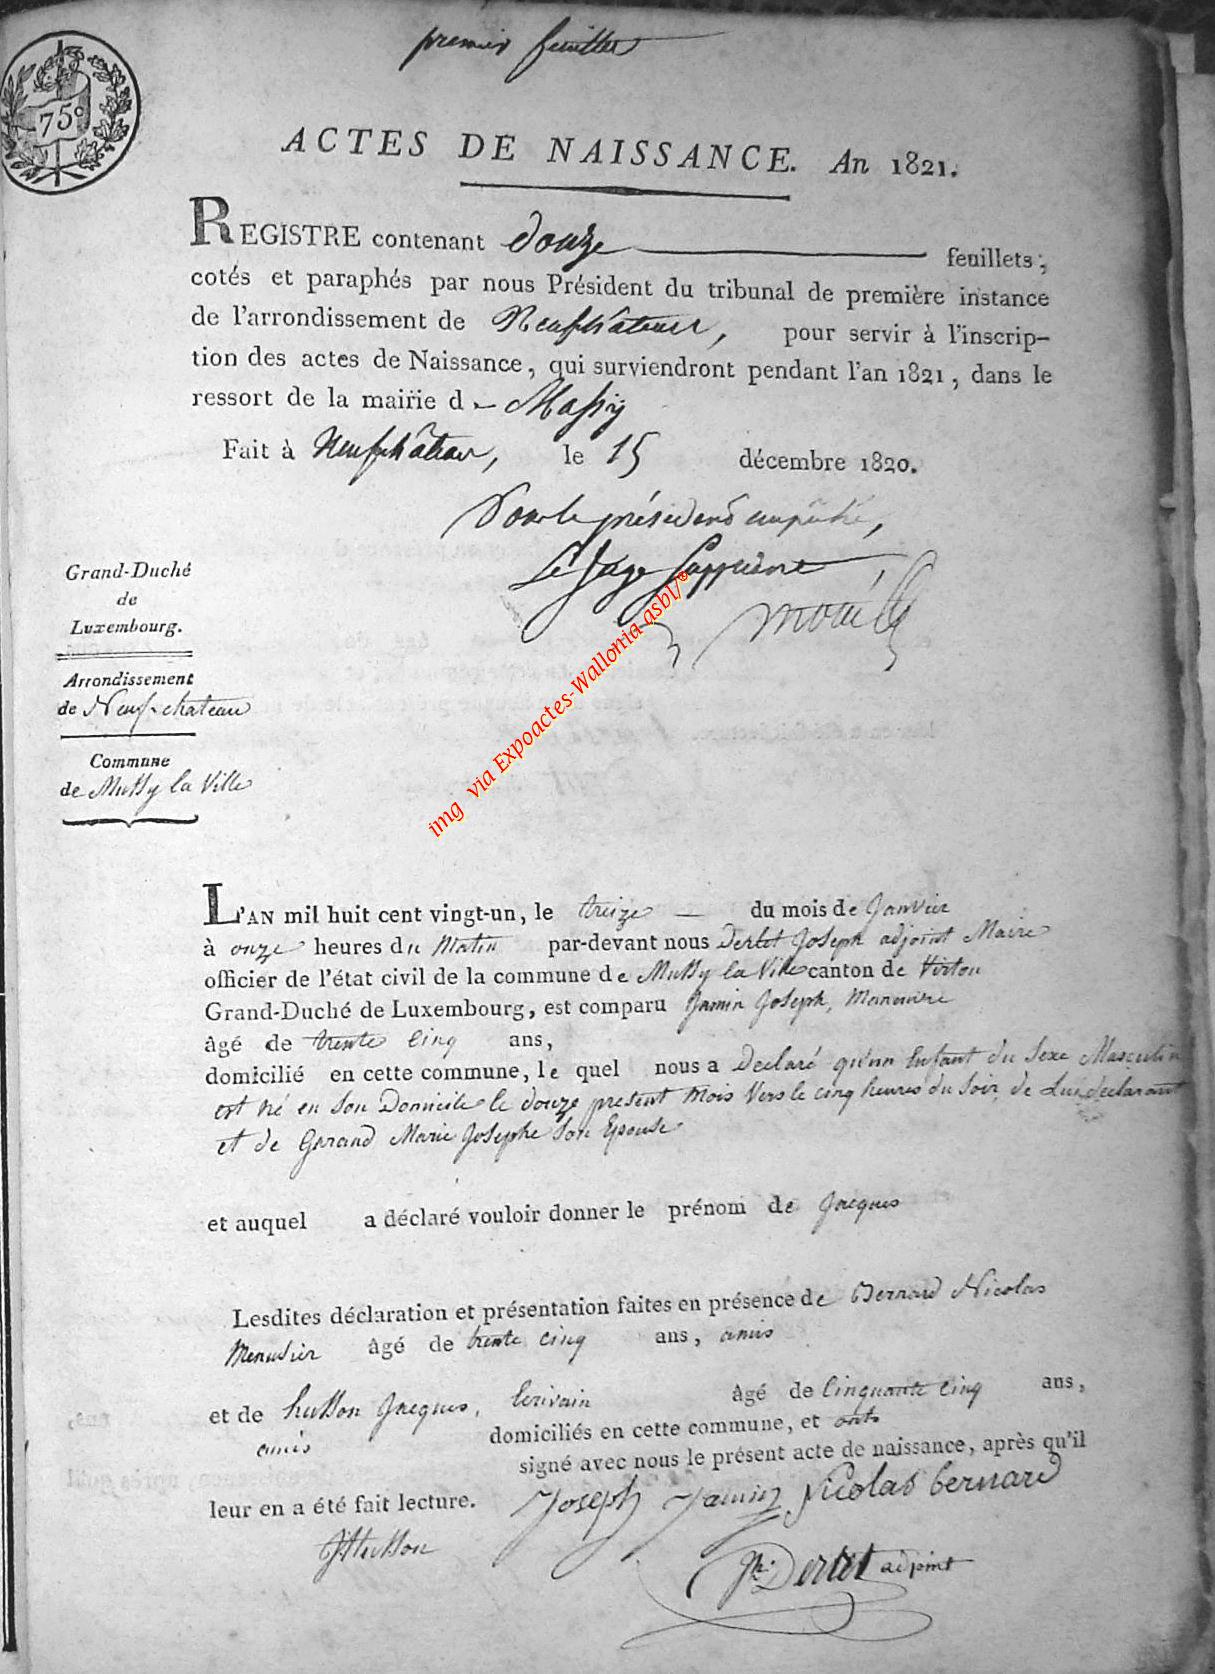 premier feuillet
75c
ACTES DE NAISSANCE. An 1821.
REGISTRE contenant douze feuillets,
cotés et paraphés par nous Président du tribunal de première instance
de l'arrondissement de Neufchateau, pour servir à l'inscrip-
tion des actes de Naissance, qui surviendront pendant l'an 1821, dans le
ressort de la mairie de Mussy
Fait à Neufchâteau, le 15 décembre 1820.
Pour le président empêché,
Le Juge Suppléant
Grand-Duché
de
Luxembourg.
Arrondissement
de Neuf-chateau
Commune
de Mussy la Ville
img via Expoactes-Wallonia-asbl/®
L'AN mil huit cent vingt-un, le treize du mois de Janvier
à onze heures du Matin par-devant nous Derlet Joseph adjoint Maire
officier de l'état civil de la commune de Mussy la Ville canton de Virton
Grand-Duché de Luxembourg, est comparu Jamin Joseph, Manouvre
âgé de trente cinq ans,
domicilié en cette commune, le quel nous a declaré qu'un Enfant du Sexe Masculin
est né en Son Domicile le douze present Mois Vers le cinq heures du Soir, de Lui declarant
et de Gerand Marie Josephe Son Epouse
et auquel a déclaré vouloir donner le prénom de Jacques
Lesdites déclaration et présentation faites en présence de Bernard Nicolas
Menusier âgé de trente cinq ans, amis
et de husson Jacques, Ecrivain âgé de Cinquante cinq ans,
amis domiciliés en cette commune, et onts
signé avec nous le présent acte de naissance, après qu'il
leur en a été fait lecture. Joseph Jamin Nicolas bernard
JHusson
Jh. Derlet adjoint